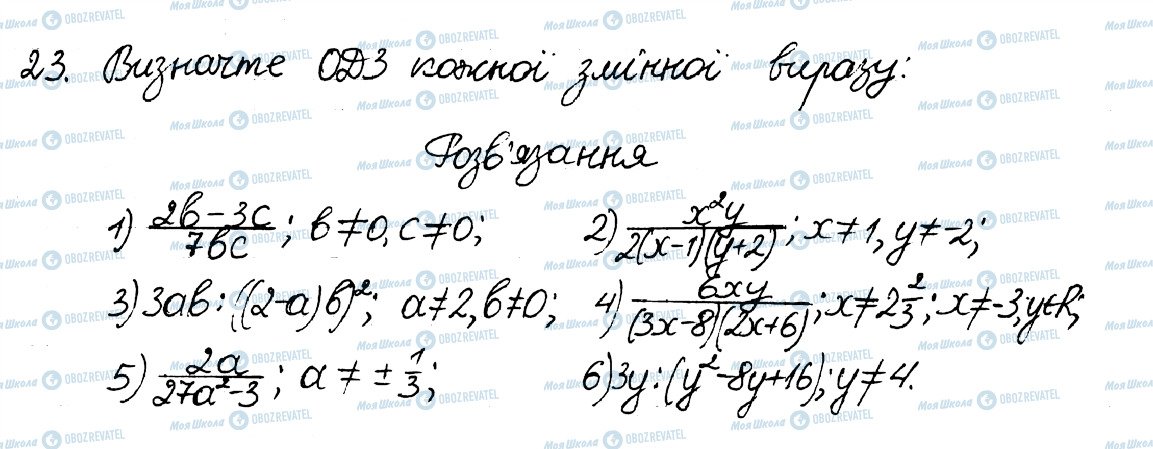 23. Визначте ОДЗ кожної змінної виразу:
Розв'язання
1) (2b-3c)/(7bc); b≠0, c≠0; 2) (x²y)/(2(x-1)(y+2)); x≠1, y≠-2;
3) 3ab : ((2-a)b)²; a≠2, b≠0; 4) (6xy)/((3x-8)(2x+6)); x≠2 2/3; x≠-3; y∈R;
5) (2a)/(27a²-3); a≠±1/3; 6) 3y : (y²-8y+16); y≠4.